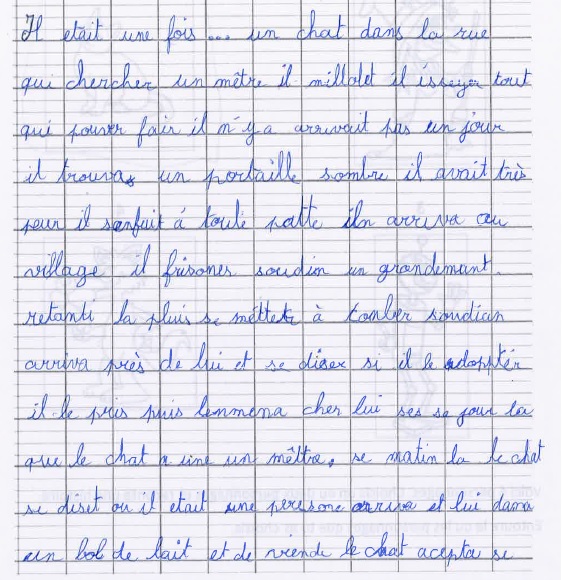 Il etait une fois ... un chat dans la rue
qui chercher un mêtre il millolet il issayer tout
qui pouver fair il n'y a arrivait pas un jour
il trouva un portaille sombre il avait très
peur il sanfuit á toute patte iln arriva au
village il frisoner soudin un grandemant
retanti la pluis se mettet à tomber soudian
arriva près de lui et se diser si il le adoppter
il le pris puis lenmena cher lui ses se jour la
que le chat a une un mêttre, se matin la le chat
se disit ou il etait une peresone arriva et lui dana
un bol de lait et de viende le chat acepta se